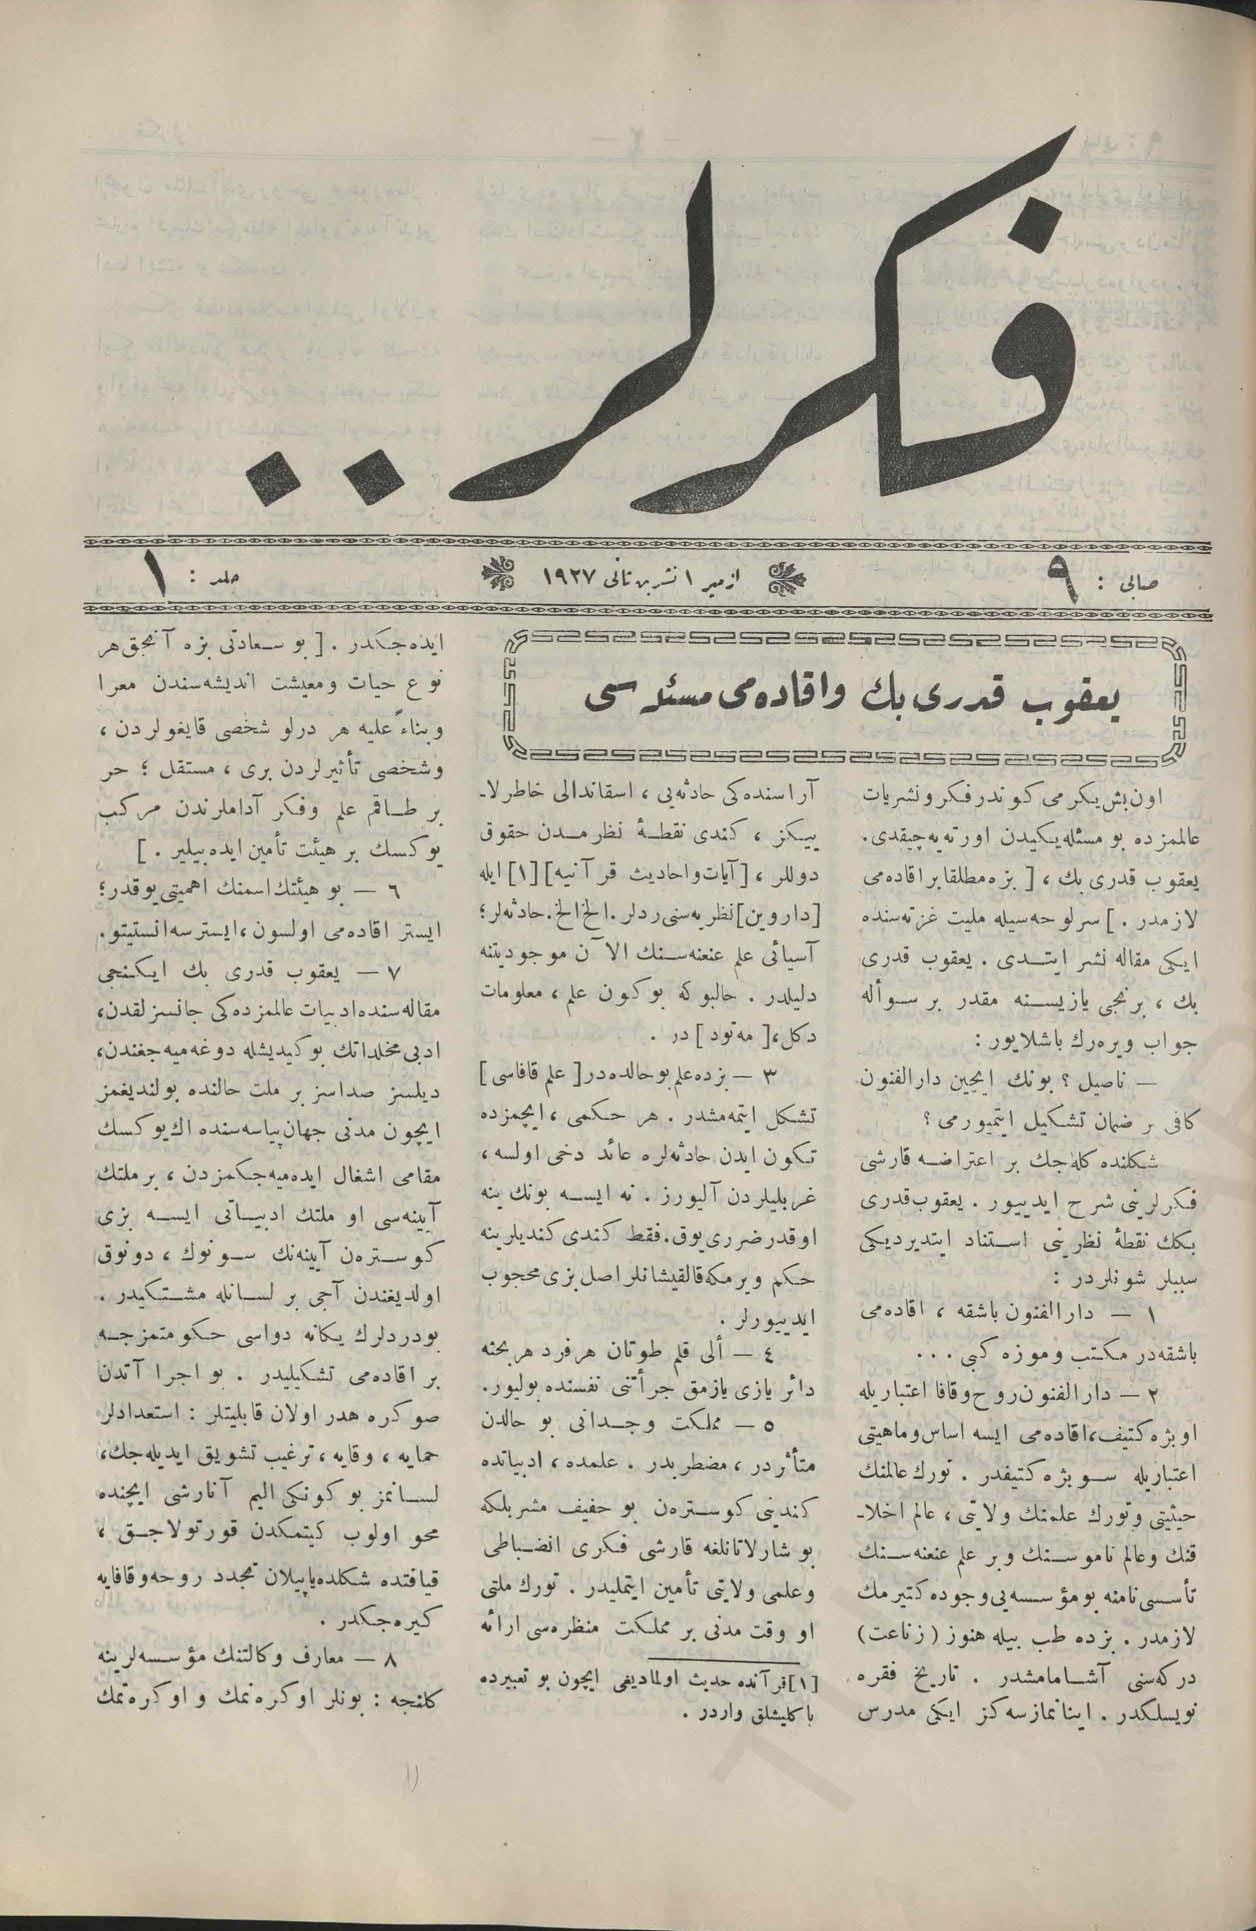 فكرلر..
صايى : ٩
ازمير ١ تشرين ثانى ١٩٢٧
جلد : ١
يعقوب قدرى بك و اقاده‌مى مسئله سى
اون بش يكرمى كوندر فكر ونشريات
عالمزده بو مسئله يكيدن اورته‌يه چيقدى.
يعقوب قدرى بك ، [ بزه مطلقا بر اقاده‌مى
لازمدر . ] سرلوحه‌سيله مليت غزته‌سنده
ايكى مقاله نشر ايتــدى . يعقوب قدرى
بك ، برنجى يازيســنه مقدر بر ســؤاله
جواب ويره‌رك باشلايور :
— ناصيل ؟ بونك ايچين دار الفنون
كافى بر ضمان تشكيل ايتميورمى ؟
شكلنده كله‌جك بر اعتراضــه قارشى
فكرلرينى شرح ايدييور . يعقوب قدرى
بكك نقطهٔ نظرينى اســتناد ايتديرديكى
سببلر شونلردر :
١ — دار الفنون باشقه ، اقاده‌مى
باشقه‌در مكتب وموزه كبى ...
٢ — دار الفنون روح وقافا اعتباريله
اوبژه كتيف، اقاده‌مى ايسه اساس وماهيتى
اعتباريله سوبژه كتيفدر . تورك عالمنك
حيثيتى وتورك علمنك ولايتى ، عالم اخلا‌ـ
قنك وعالم ناموسـنك وبر علم عنعنه‌سـنك
تأسسى نامنه بو مؤسسه‌يى وجوده كتيرمك
لازمدر . بزده طب بيله هنوز ( زناعت )
دركه‌سنى آشــامامشدر . تاريخ فقره
نويسلكدر . اينانمازسه‌كز ايكى مدرس
آراسنده‌كى حادثه‌يى ، اسقاندالى خاطرلا‌ـ
ييكز ، كندى نقطــهٔ نظرمــدن حقوق
دوللر ، [آيات واحاديث قرآنيه] [١] ايله
[داروين] نظريه‌سنى ردلر . الخ الخ . حادثه‌لر ؛
آسيائى علم عنعنه‌سـنك الآن موجوديتنه
دليلدر . حالبوكه بوكون علم ، معلومات
دكل، [ مه‌تود ] در .
٣ — بزده علم بو حالده‌در [ علم قافاسى ]
تشكل ايتمه‌مشدر . هر حكمى ، ايچمزده
تكون ايدن حادثه‌لره عائد دخى اولسه ،
غربليلردن آليورز . نه ايســه بونك ينه
اوقدر ضررى يوق . فقط كندى كنديلرينه
حكم ويرمكه قالقيشانلر اصل بزى محجوب
ايدييورلر .
٤ — ألى قلم طوتان هر فرد هر بحثه
دائر يازى يازمق جرأتنى نفسنده بوليور.
٥ — مملكت وجــدانى بو حالدن
متأثردر ، مضطربدر . علمده ، ادبياتده
كندينى كوسـتره‌ن بو حفيف مشربلكه
بو شارلاتانلغه قارشى فكرى انضـباطى
وعلمى ولايتى تأمين ايتمليدر . تورك ملتى
او وقت مدنى بر مملكت منظره‌سى ارائه
[١] قرآنده حديث اولماديغى ايچون بو تعبيرده
ياكليشلق واردر .
ايده‌جكدر . [ بو سـعادتى بزه آنجق هر
نوع حيات ومعيشت انديشه‌سندن معرا
وبناءً عليه هر درلو شخصى قايغولردن ،
وشخصى تأثيرلردن برى ، مستقل ؛ حر
بر طــاقم علم وفكر آداملرندن مركب
يوكسك بر هيئت تأمين ايده‌بيلير . ]
٦ — بو هيئتك اسمنك اهميتى يوقدر ؛
ايستر اقاده‌مى اولسون ، ايسترسه انستيتو.
٧ — يعقوب قدرى بك ايكـنجى
مقاله‌سنده ادبيات عالمزده‌كى جانسزلقدن،
ادبى مخلداتك بو كيديشله دوغه‌ميه‌جغندن،
ديلسز صداسز بر ملت حالنده بولنديغمز
ايچون مدنى جهان پياسه‌سنده اك يوكسك
مقامى اشغال ايده‌ميه‌جكمزدن ، بر ملتك
آيينه‌سى او ملتك ادبيــاتى ايســه بزى
كوسـتره‌ن آيينه‌نك ســونوك ، دونوق
اولديغندن آجى بر لسـانله مشـتكيدر .
بو دردلرك يكانه دواسى حكومتمزجــه
بر اقاده‌مى تشكيليدر . بو اجراآتدن
صوكره هدر اولان قابليتلر : استعدادلر
حمايه ، وقايه ، ترغيب تشويق ايديله‌جك،
لسـانمز بو كونكى اليم آنارشى ايچنده
محو اولوب كيتمكدن قورتولاجــق ،
قيافتده شكلده ياپيلان تجدد روحه وقافايه
كيره‌جكدر .
٨ — معارف وكالتنك مؤسسه‌لرينه
كلنجه : بونلر اوكره‌نمك و اوكره‌تمك